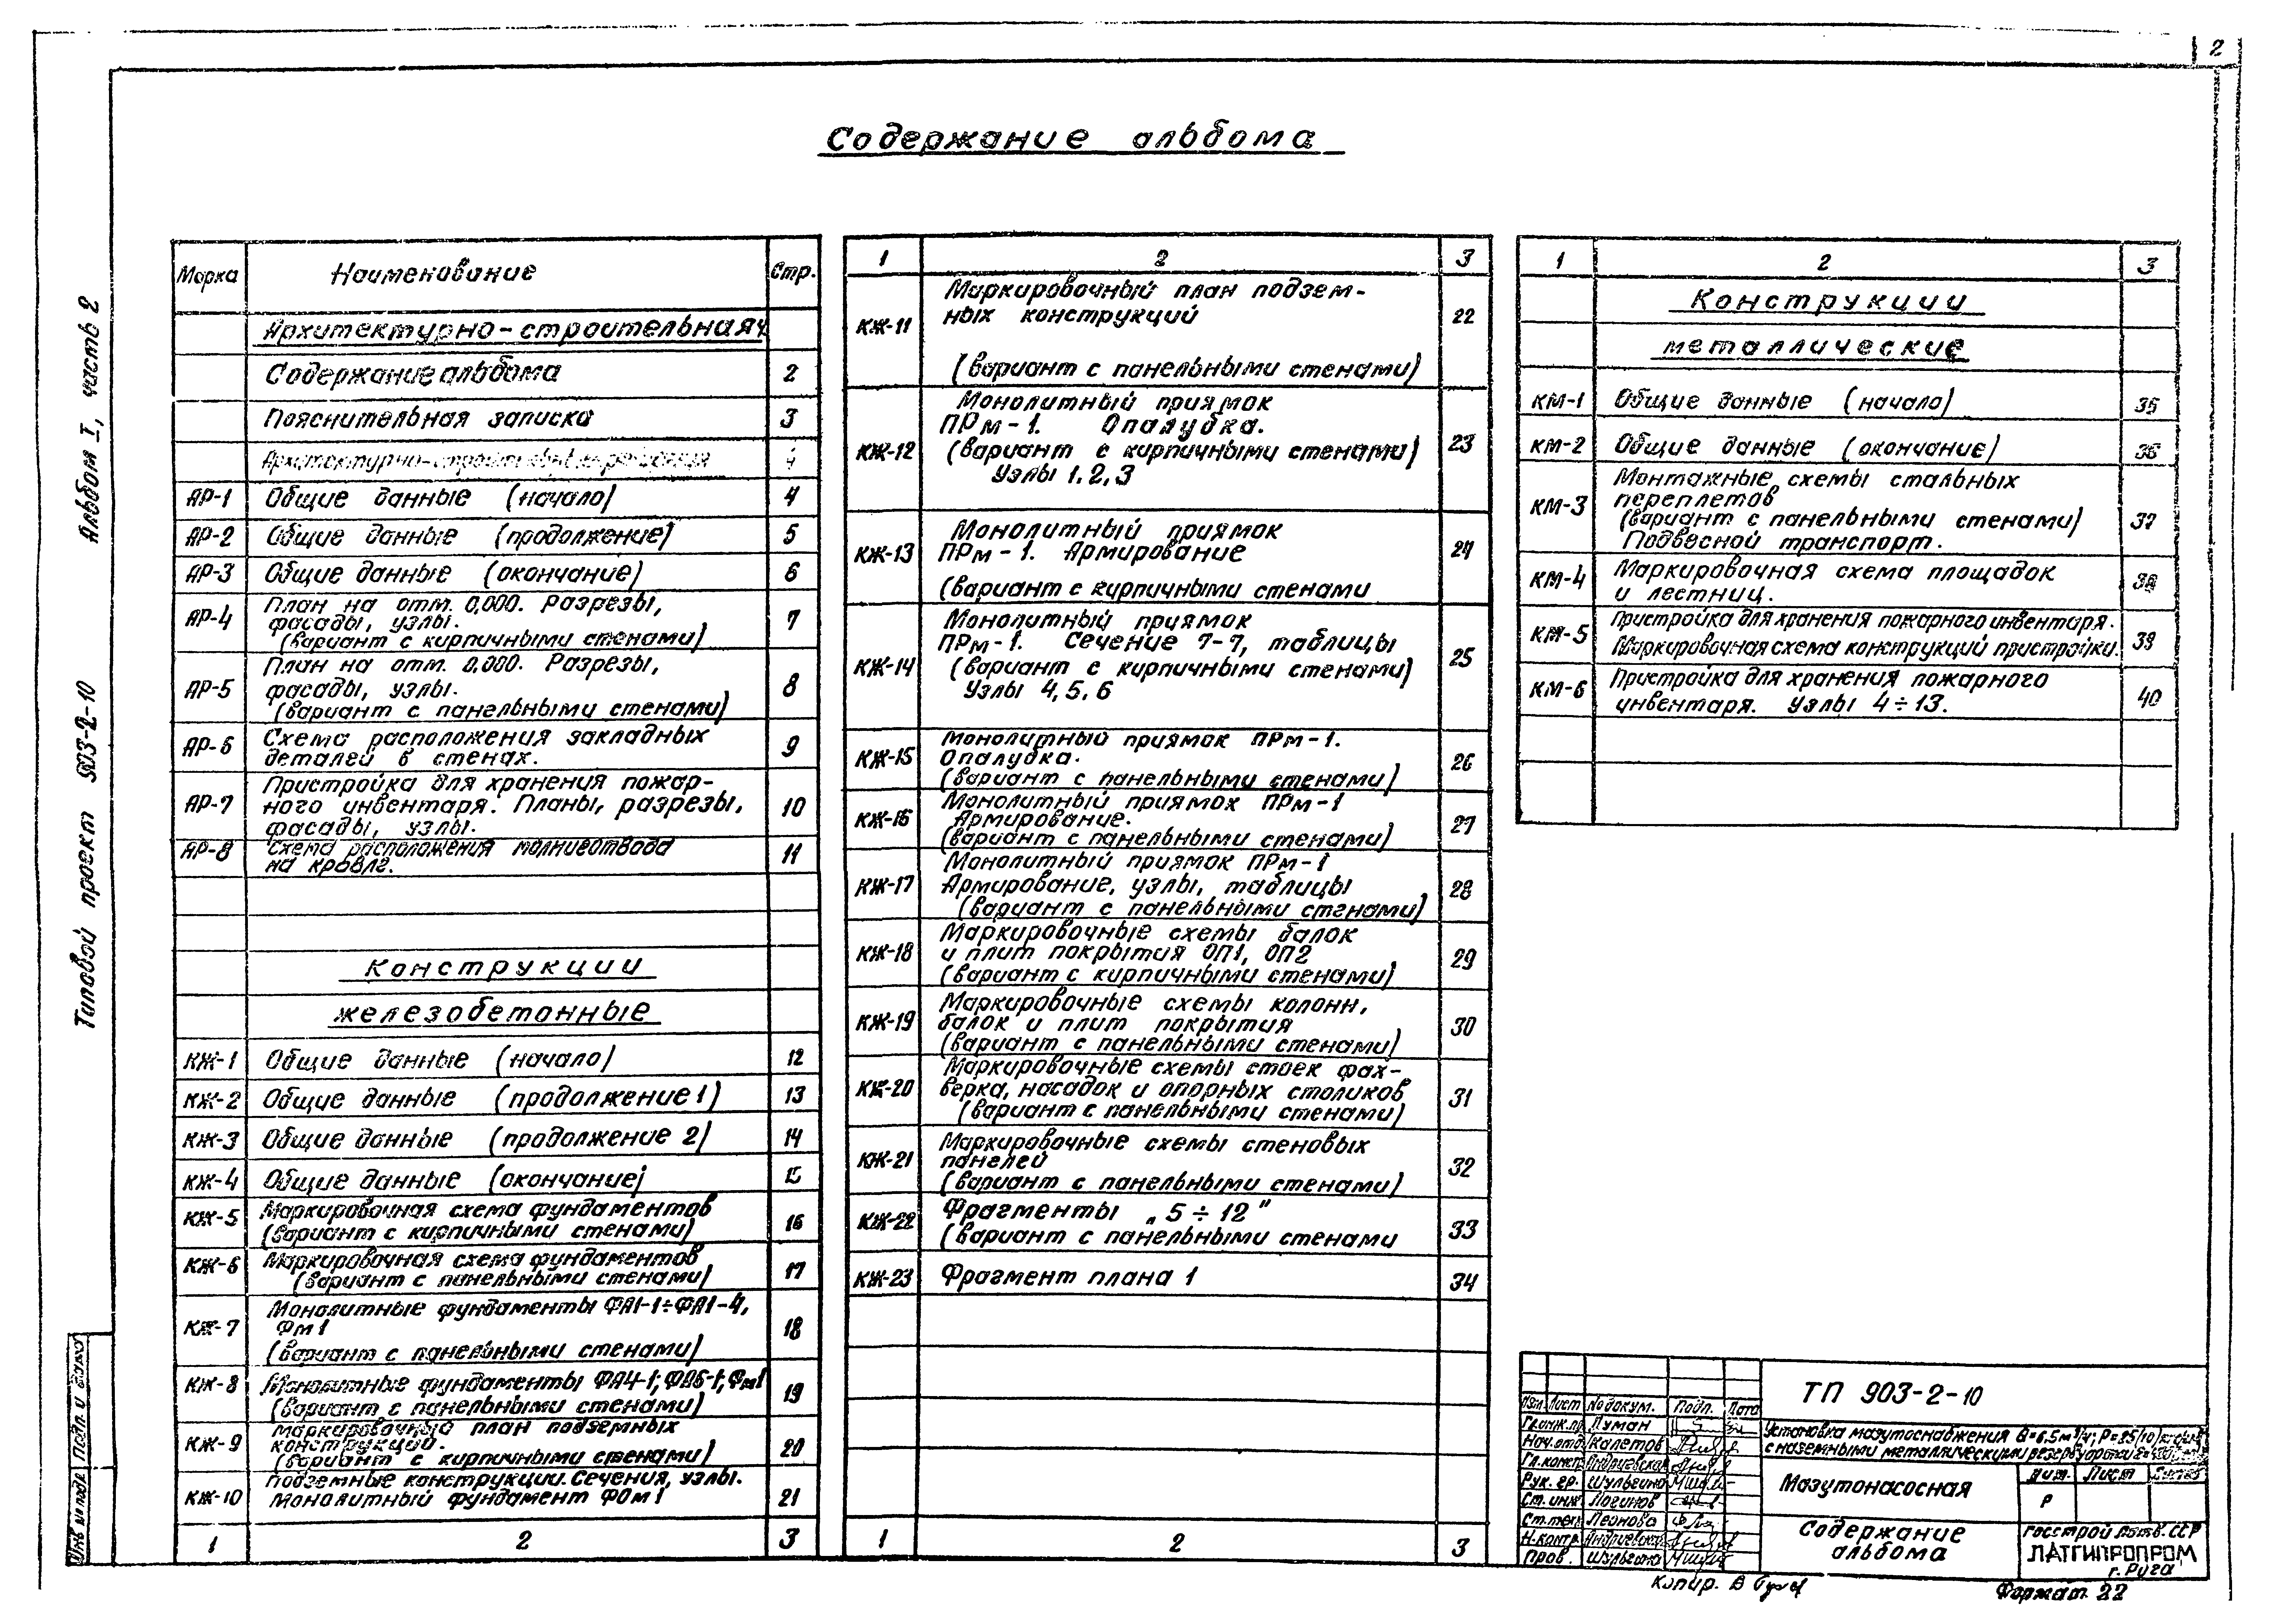 2
Содержание альбома
Альбом I, часть 2
Типовой проект 903-2-10
Марка Наименование Стр.
Архитектурно-строительная ч.
Содержание альбома 2
Пояснительная записка 3
АР-1 Общие данные (начало) 4
АР-2 Общие данные (продолжение) 5
АР-3 Общие данные (окончание) 6
АР-4 План на отм. 0,000. Разрезы, 7
фасады, узлы.
(вариант с кирпичными стенами)
АР-5 План на отм. 0,000. Разрезы, 8
фасады, узлы.
(вариант с панельными стенами)
АР-6 Схема расположения закладных 9
деталей в стенах.
АР-7 Пристройка для хранения пожар- 10
ного инвентаря. Планы, разрезы,
фасады, узлы.
АР-8 Схема расположения молниеотвода 11
на кровле.
Конструкции
железобетонные
КЖ-1 Общие данные (начало) 12
КЖ-2 Общие данные (продолжение 1) 13
КЖ-3 Общие данные (продолжение 2) 14
КЖ-4 Общие данные (окончание) 15
КЖ-5 Маркировочная схема фундаментов 16
(вариант с кирпичными стенами)
КЖ-6 Маркировочная схема фундаментов 17
(вариант с панельными стенами)
КЖ-7 Монолитные фундаменты ФА1-1÷ФА1-4, 18
Фм1
(вариант с панельными стенами)
КЖ-8 Монолитные фундаменты ФА4-1; ФА5-1; Фм1 19
(вариант с панельными стенами)
КЖ-9 Маркировочный план подземных 20
конструкций.
(вариант с кирпичными стенами)
КЖ-10 Подземные конструкции. Сечения, узлы. 21
Монолитный фундамент ФОм1
1 2 3
1 2 3
КЖ-11 Маркировочный план подзем- 22
ных конструкций
(вариант с панельными стенами)
КЖ-12 Монолитный приямок 23
ПРм-1. Опалубка.
(вариант с кирпичными стенами)
Узлы 1, 2, 3
КЖ-13 Монолитный приямок 24
ПРм-1. Армирование
(вариант с кирпичными стенами
КЖ-14 Монолитный приямок 25
ПРм-1. Сечение 7-7, таблицы
(вариант с кирпичными стенами)
Узлы 4, 5, 6
КЖ-15 Монолитный приямок ПРм-1. 26
Опалубка.
(вариант с панельными стенами)
КЖ-16 Монолитный приямок ПРм-1 27
Армирование.
(вариант с панельными стенами)
КЖ-17 Монолитный приямок ПРм-1 28
Армирование, узлы, таблицы
(вариант с панельными стенами)
КЖ-18 Маркировочные схемы балок 29
и плит покрытия ОП1, ОП2
(вариант с кирпичными стенами)
КЖ-19 Маркировочные схемы колонн, 30
балок и плит покрытия
(вариант с панельными стенами)
КЖ-20 Маркировочные схемы стоек фах- 31
верка, насадок и опорных столиков
(вариант с панельными стенами)
КЖ-21 Маркировочные схемы стеновых 32
панелей
(вариант с панельными стенами)
КЖ-22 Фрагменты „5÷12" 33
(вариант с панельными стенами
КЖ-23 Фрагмент плана 1 34
1 2 3
1 2 3
Конструкции
металлические
КМ-1 Общие данные (начало) 35
КМ-2 Общие данные (окончание) 36
КМ-3 Монтажные схемы стальных 37
переплетов
(вариант с панельными стенами)
Подвесной транспорт.
КМ-4 Маркировочная схема площадок 38
и лестниц.
КМ-5 Пристройка для хранения пожарного инвентаря. 39
Маркировочная схема конструкций пристройки.
КМ-6 Пристройка для хранения пожарного 40
инвентаря. Узлы 4÷13.
ТП 903-2-10
Изм Лист № докум. Подп. Дата
Гл.инж.пр. Луман
Нач.отд. Калетов
Гл.констр. Андриевская
Рук. гр. Шульгина
Ст. инж Логинов
Ст.тех Леонова
Н.контр. Андриевская
Пров. Шульгина
Установка мазутоснабжения
с наземными металлическими
Мазутонасосная
Лит. Лист Листов
Р
Содержание
альбома
Госстрой Латв. ССР
ЛАТГИПРОПРОМ
г. Рига
Копир.
Формат 22
Инв № подл. Подп. и дата